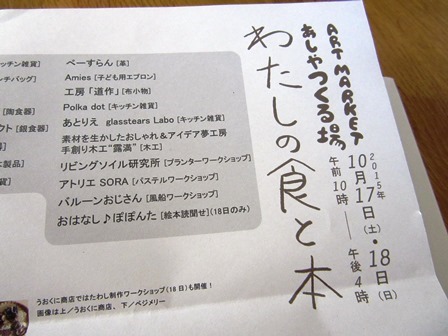 ART MARKET
あしやつくる場
わたしの食と本
2015年
10月17日(土)・18日(日)
午前10時——午後4時
ッチン雑貨]
ンチバッグ]
[陶食器]
クト [銀食器]
木製品]
べーすらん [革]
Amies [子ども用エプロン]
工房「道作」[布小物]
Polka dot [キッチン雑貨]
あとりえ glasstears Labo [キッチン雑貨]
素材を生かしたおしゃれ&アイデア夢工房
手創り木工"露満" [木工]
リビングソイル研究所 [プランターワークショップ]
アトリエ SORA [パステルワークショップ]
バルーンおじさん [風船ワークショップ]
おはなし♪ぽぽんた [絵本読聞せ] (18日のみ)
うおくに商店ではたわし制作ワークショップ(18 日)も開催!
画像は上/うおくに商店、下/ベジメリー